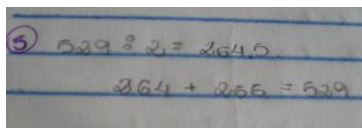 5 529 : 2 = 264.5
264 + 265 = 529